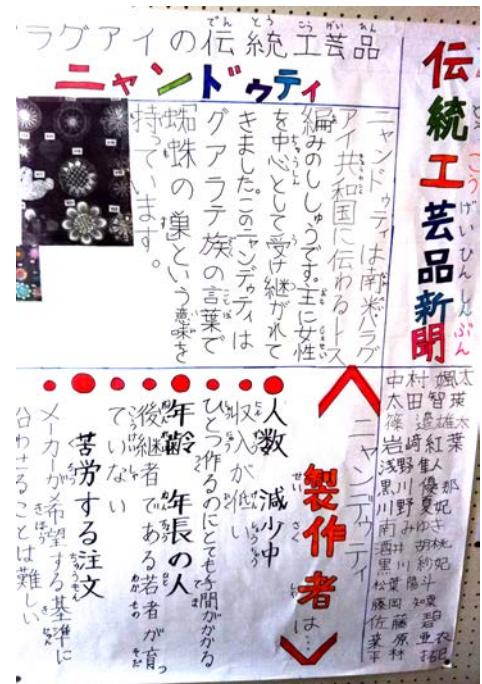 伝統工芸品新聞
ラグアイの伝統工芸品
ニャンドゥティ
ニャンドゥティは南米パラグ
アイ共和国に伝わるレース
編みのししゅうです。主に女性
を中心として受け継がれて
きました。このニャンドゥティは
グアラテ族の言葉で
「蜘蛛の巣」という意味を
持っています。
中村 颯太
太田智瑛
雄太
岩﨑紅葉
浅野隼人
黒川 優那
川野夏妃
南 みゆき
酒井 胡桃
黒川 紗妃
松葉陽斗
藤岡
佐藤 碧
原 亜衣
平林
ニャンデゥティ
製作者は…
人数 減少中
収入が低い
ひとつ作るのにとても手間がかがる
年齢 年長の人
後継者である若者が育っ
ていない
苦労する注文
メーカーが希望する基準に
合わせることは難しい